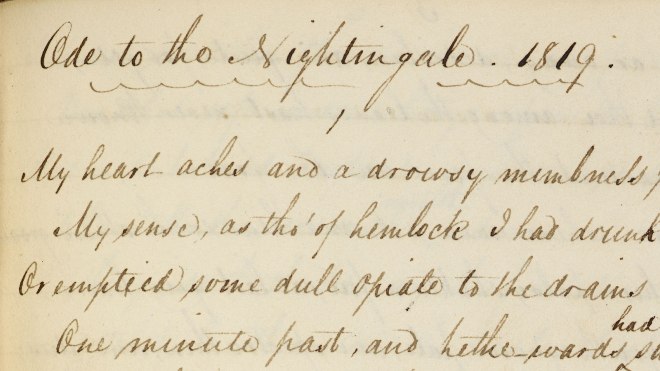 Ode to the Nightingale. 1819.
1
My heart aches and a drowsy numbness
My sense, as tho' of hemlock I had drunk
Or emptied some dull opiate to the drains
had
One minute past, and Lethe-wards